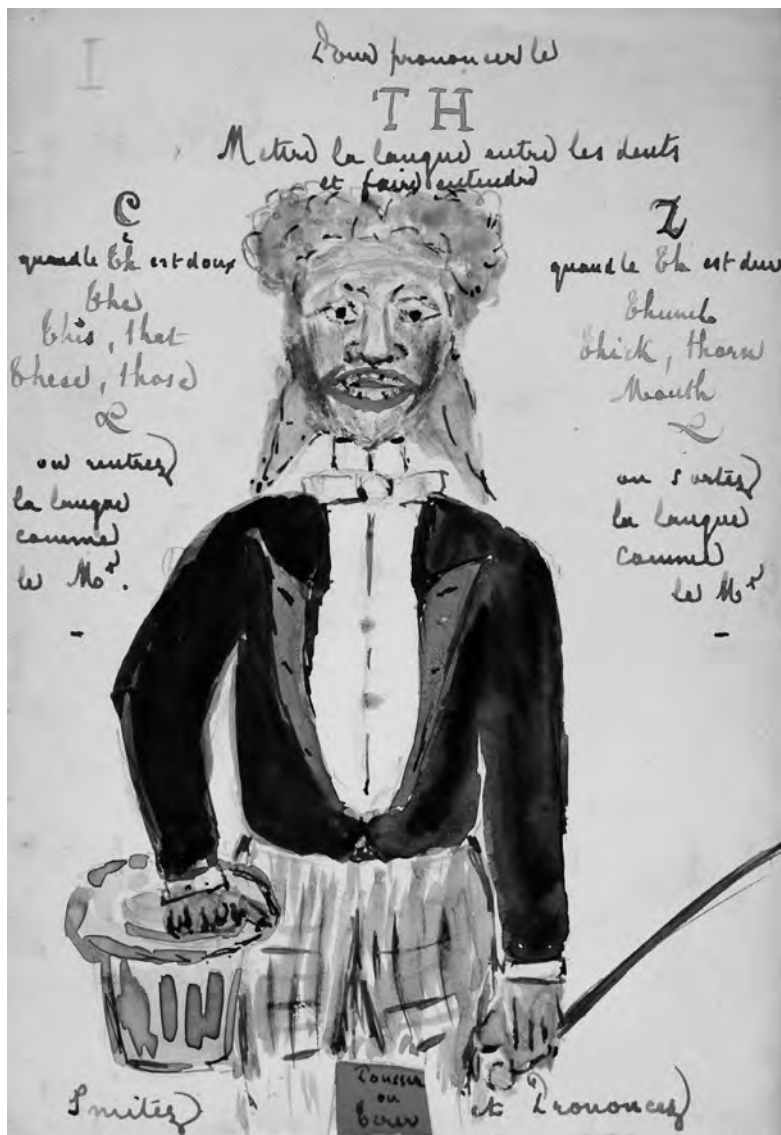 I
Pour prononcer le
TH
Mettre la langue entre les dents
et faire entendre
C
quand le th est doux
the
this, that
these, those
ou rentrez
la langue
comme
le Mr.
Z
quand le th est dur
thumb
thick, thorn
Mouth
ou sortez
la langue
comme
le Mr
Imitez
Pousser
ou
tirer
et Prononcez